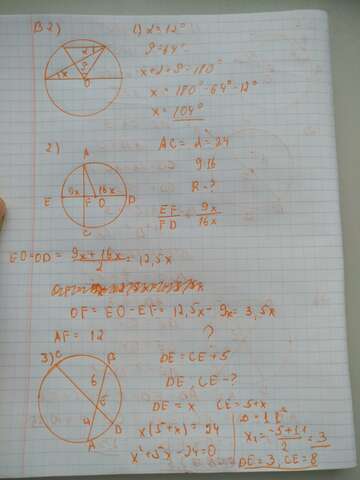 В2)
1) α = 12°
β = 64°
x + α + β = 180°
x = 180° - 64° - 12°
x = 104°
α β x O
2)
AC = d = 24
9 16
R - ?
EF/FD 9x/16x
A E 9x F O 16x D C
EO=OD = (9x + 16x)/2 = 12,5x
OF = EO - EF = 12,5x - 9x = 3,5x
AF = 12
?
3)
C B 6 E 4 A D
DE = CE + 5
DE, CE - ?
DE = x CE = 5+x
x(5+x) = 24
x² + 5x - 24 = 0
x₁ = (-5+11)/2 = 3
DE = 3, CE = 8